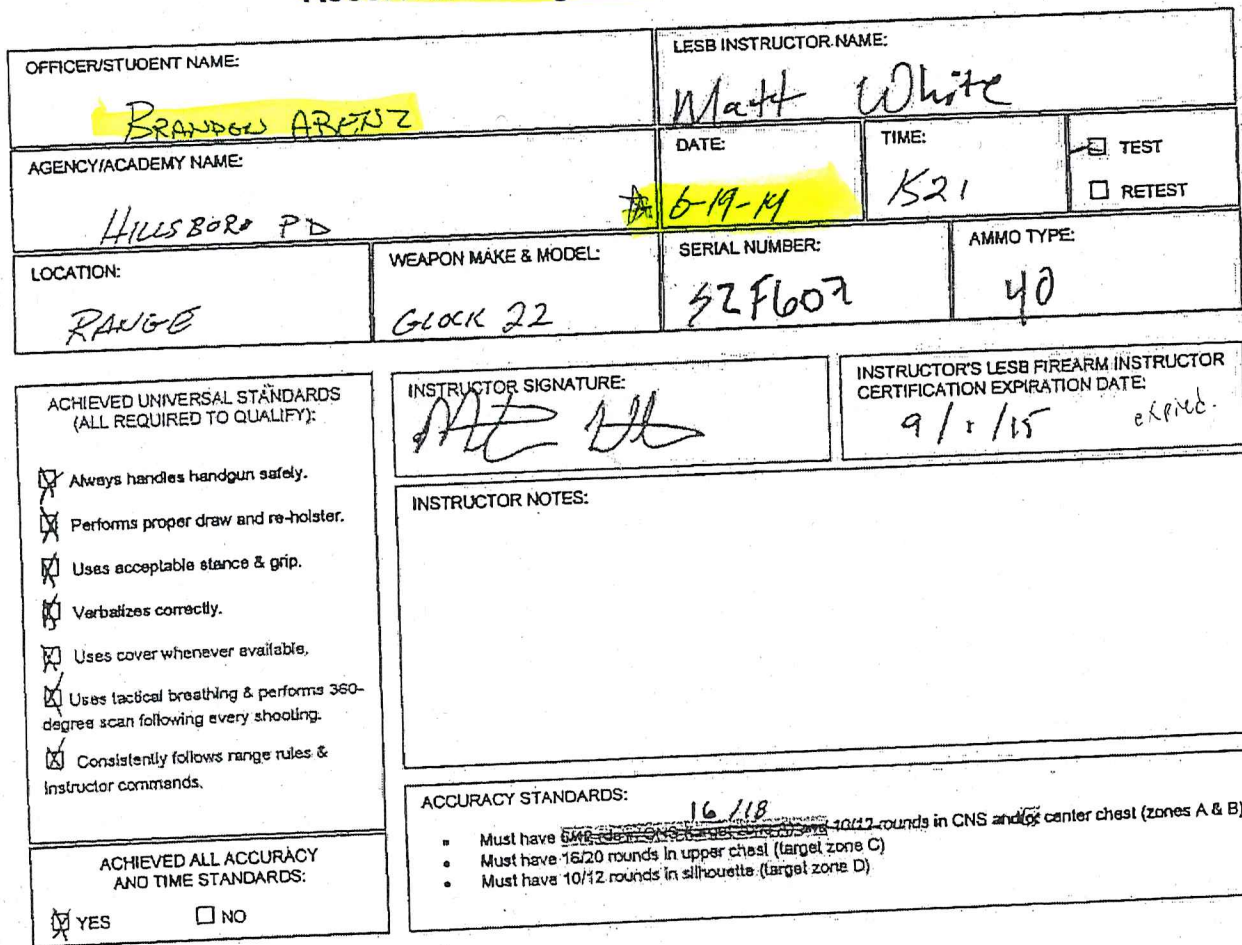 OFFICER/STUDENT NAME:
BRANDON ARENZ
LESB INSTRUCTOR NAME:
Matt White
AGENCY/ACADEMY NAME:
HILLSBORO PD
DATE:
6-19-14
TIME:
1521
TEST
RETEST
LOCATION:
RANGE
WEAPON MAKE & MODEL:
GLOCK 22
SERIAL NUMBER:
AMMO TYPE:
40
ACHIEVED UNIVERSAL STANDARDS
(ALL REQUIRED TO QUALIFY):
Always handles handgun safely.
Performs proper draw and re-holster.
Uses acceptable stance & grip.
Verbalizes correctly.
Uses cover whenever available.
Uses tactical breathing & performs 360-
degree scan following every shooting.
Consistently follows range rules &
Instructor commands.
ACHIEVED ALL ACCURACY
AND TIME STANDARDS:
YES
NO
INSTRUCTOR SIGNATURE:
INSTRUCTOR'S LESB FIREARM INSTRUCTOR
CERTIFICATION EXPIRATION DATE:
9/1/15 expired.
INSTRUCTOR NOTES:
ACCURACY STANDARDS:
16/18
Must have 10/12 rounds in CNS and/or center chest (zones A & B)
Must have 16/20 rounds in upper chest (target zone C)
Must have 10/12 rounds in silhouette (target zone D)